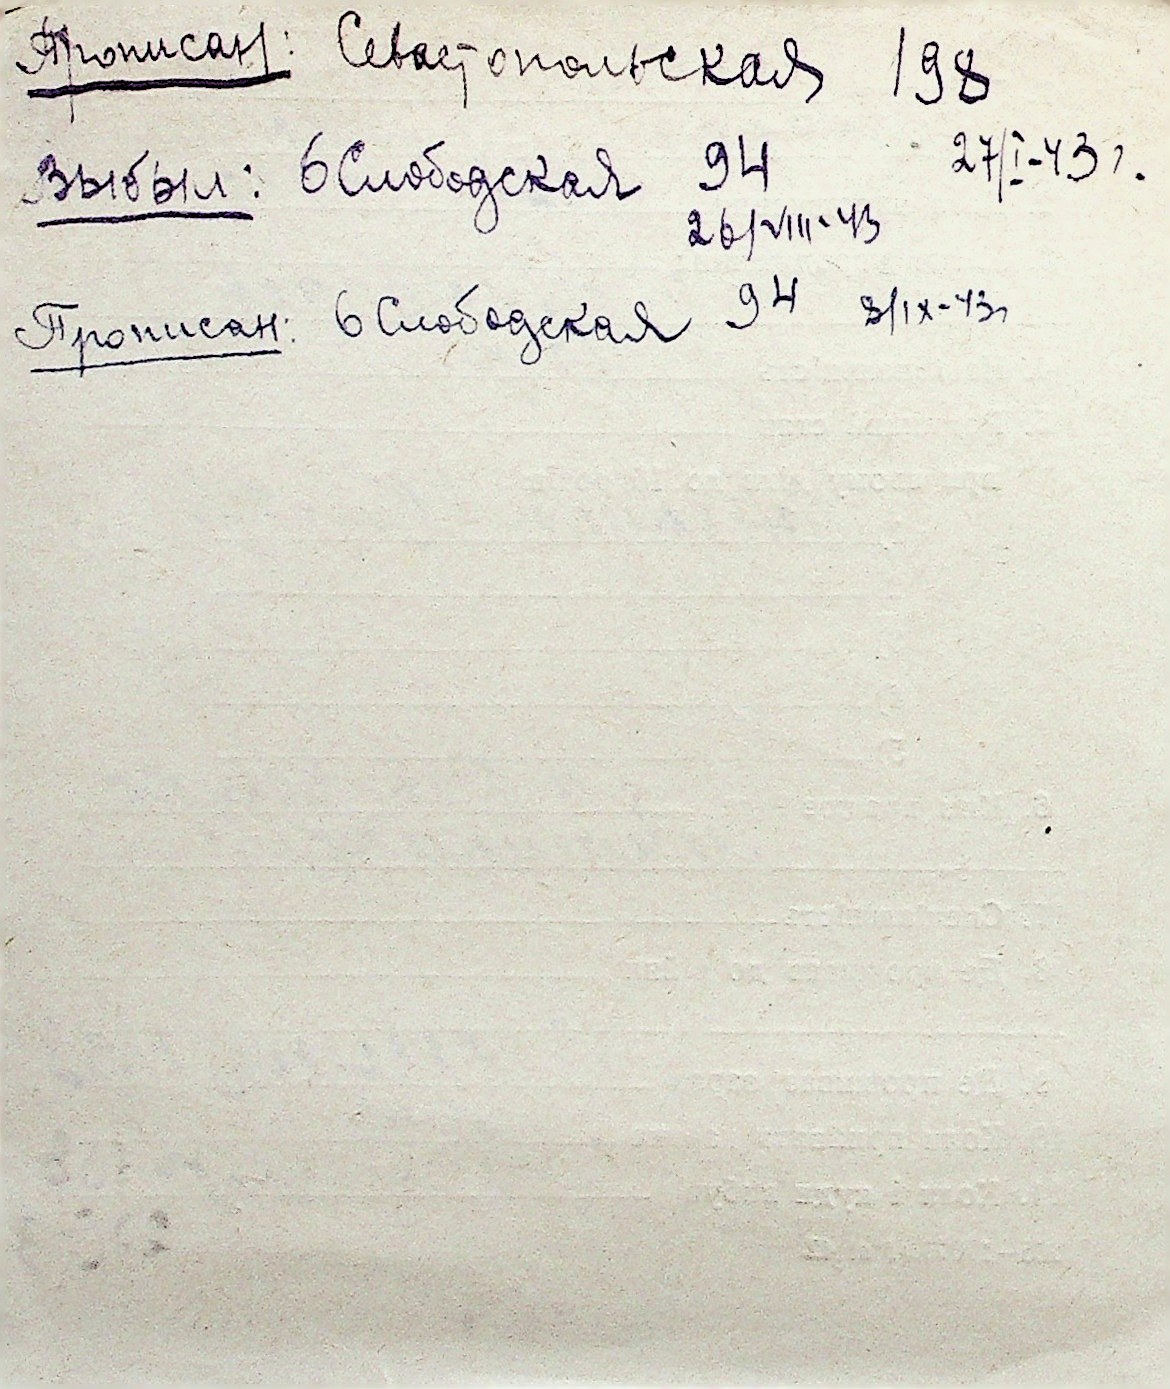 Прописан: Севастопольская 198
27/I-43 г.
Выбыл: 6 Слободская 94
26/VIII-43
Прописан: 6 Слободская 94 3/IX-43г